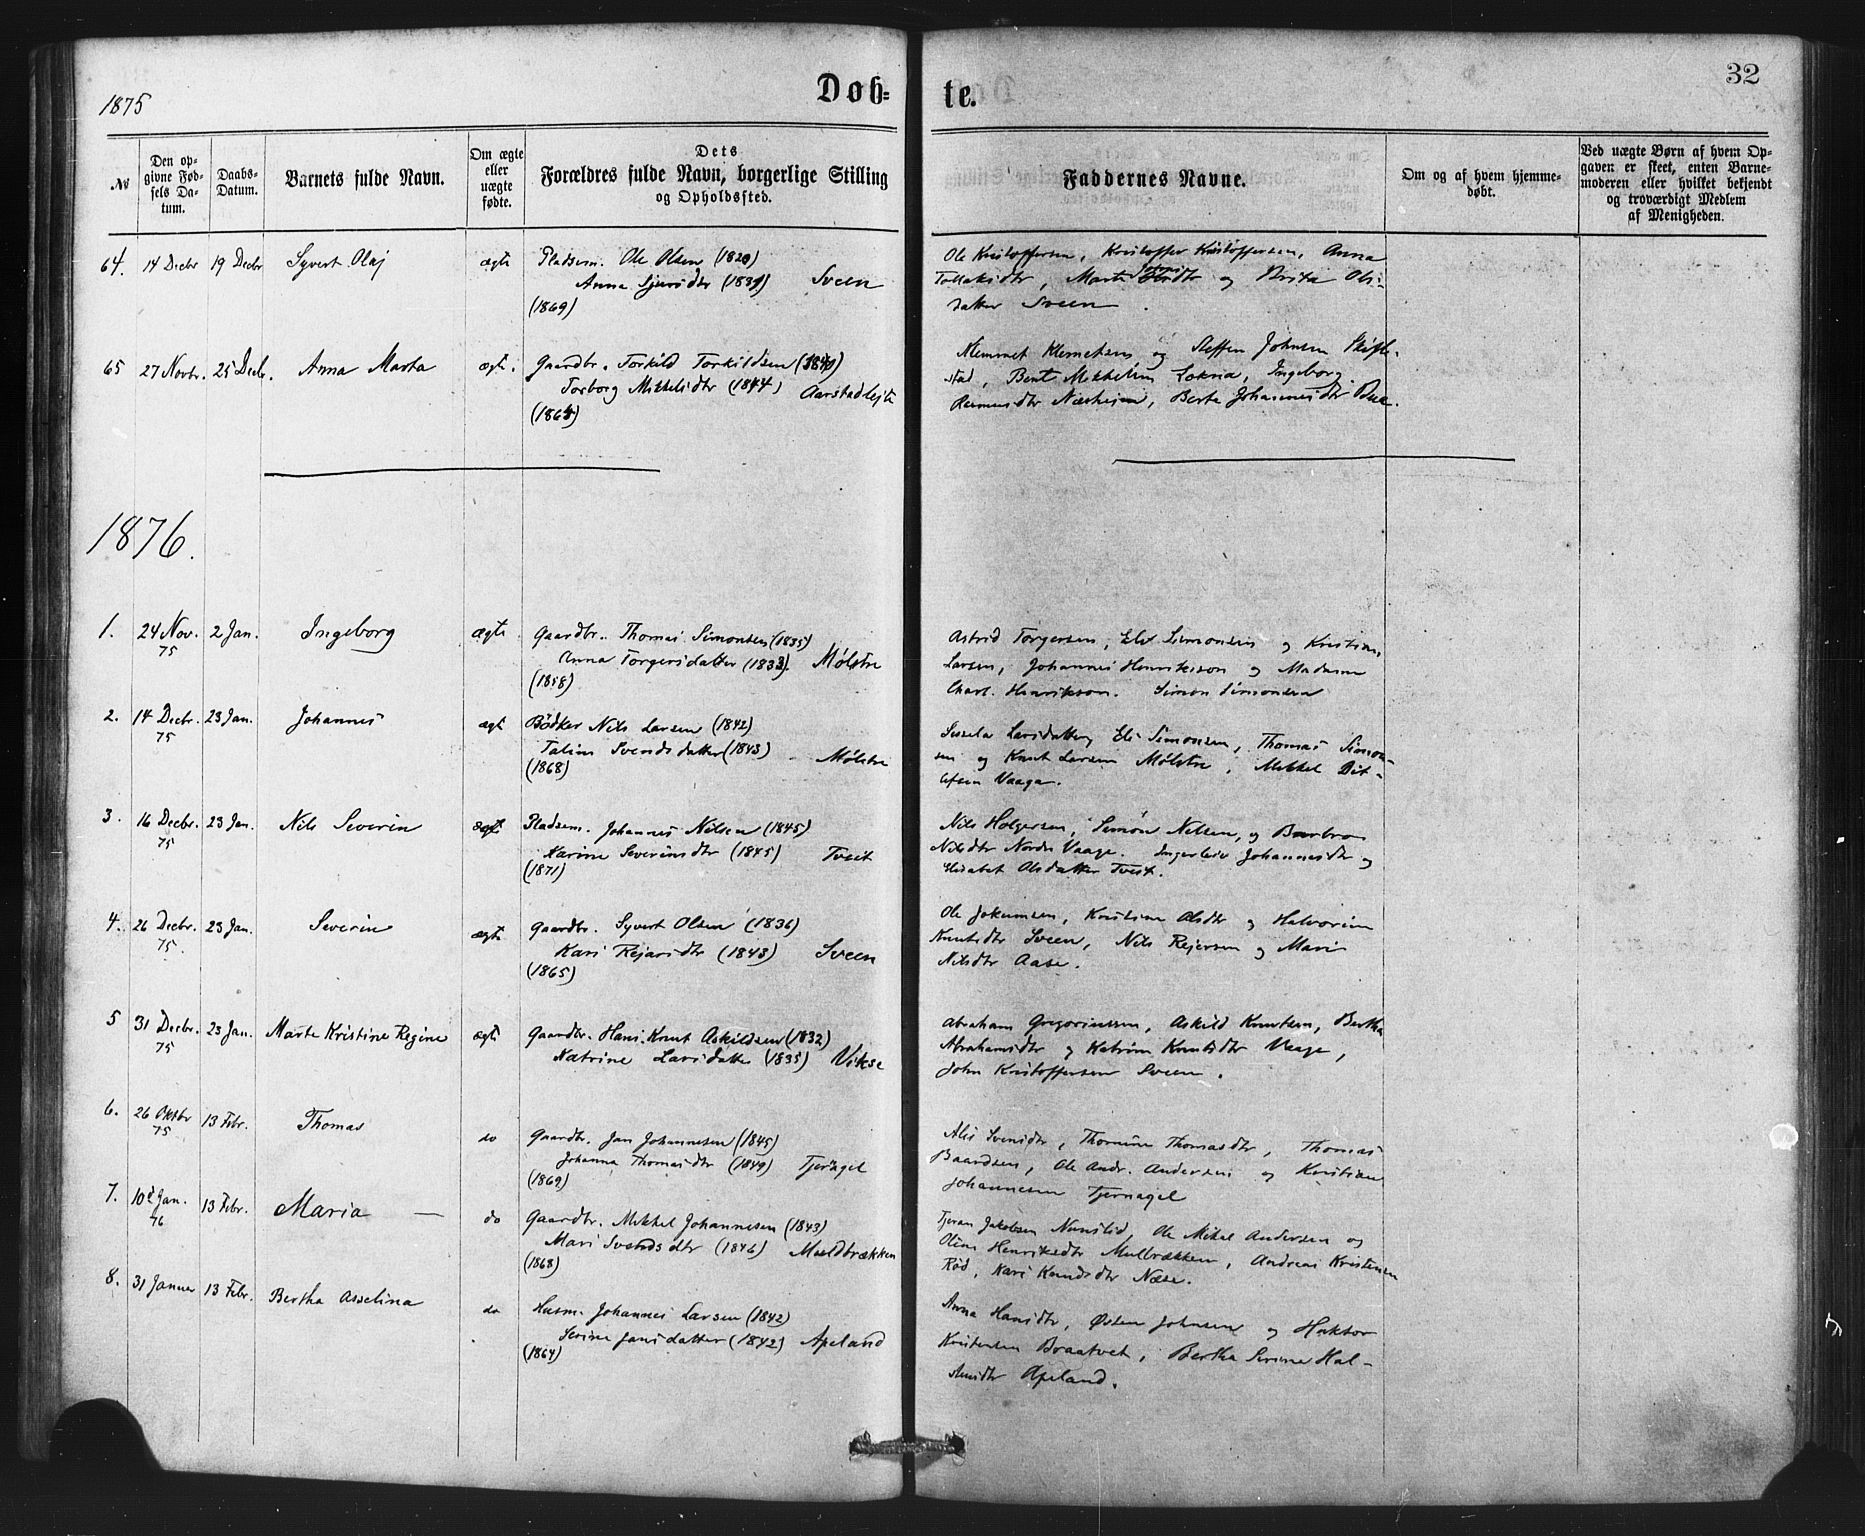 1875
Døb=
te.
32
No
Den op-
givne Fød-
sels Da-
tum.
Daabs-
Datum.
Barnets fulde Navn.
Om ægte
eller
uægte
fødte.
Dets
Forældres fulde Navn, borgerlige Stilling
og Opholdssted.
Faddernes Navne.
Om og af hvem hjemme-
døbt.
Ved uægte Børn af hvem Op-
gaven er skeet, enten Barne-
moderen eller hvilket bekjendt
og troværdigt Medlem
af Menigheden.
64. 14 Decbr 19 Decbr Syvert Olaj ægte Pladsem. Ole Olsen
Anna Sjursdtr Sveen
(1869)
Ole Kristoffersen, Kristoffer Kristoffersen, Anna
Tollaksdtr, Marta og Brita Ols-
datter Sveen.
65 27 Novbr. 25 Decbr. Anna Marta ægte. Gaardbr. Torkild Torkildsen
Torborg Mikkelsdtr (1844) Aarstadlejte
Klemmet Klemetsen og Steffen Johnsen Skifte-
stad, Bent Mikkelsen Lokna, Ingeborg
Rasmusdtr Næsheim, Berta Johannesdtr Bue.
1876.
1. 24 Nov. 75 2 Jan. Ingeborg ægte Gaardbr. Thomas Simonsen (1835)
Anna Torgersdatter Mølstre
(1858)
Astrid Torgersen, Eli Simonsen og Kristian
Larsen, Johannes Henrikson og Madame
Charl. Henrikson. Simon Simonsen
2. 14 Decbr. 75 23 Jan. Johannes ægte Bødker Nils Larsen (1842)
Taline Svendsdatter (1843) Mølstre
(1868)
Sissela Larsdatter Eli Simonsen, Thomas Simon-
sen og Knut Larsen Mølstre, Mikkel Dit-
lefsen Vaaga.
3. 16 Decbr. 75 23 Jan. Nils Severin ægte Pladsem. Johannes Nilsen (1845)
Karine Severinsdtr (1845) Tveit
(1871)
Nils Holgersen, Simon Nilsen, og Barbro
Nilsdtr Nordre Vaage. Ingerleiv Johannesdtr og
Elisabet Olsdatter Tveit.
4. 26 Decbr. 75. 23 Jan. Severin ægte Gaardbr. Syvert Olsen (1836)
Kari Rejarsdtr (1843) Sveen
(1865)
Ole Jokumsen, Kristine Olsdtr og Halvorine
Knutsdtr Sveen, Nils Rejersen og Mari
Nilsdtr Aase.
5 31 Decbr. 75 23 Jan. Marte Kristine Regine ægte Gaardbr. Hans Knut Askildsen (1832)
Katrine Larsdatter (1835) Vikse
Abraham Gregoriussen, Askild Knutsen, Bertha
Abrahamsdtr og Katrine Knutsdtr Vaage,
John Kristoffersen Sveen.
6. 26 Oktbr 75 13 Febr. Thomas do Gaardbr. Jan Johannesen (1845)
Johanna Thomasdtr (1849) Tjernagel
(1869)
Alis Svensdtr, Thomine Thomasdtr, Thomas
Baardsen, Ole Andr. Andersen og Kristian
Johannesen Tjernagel
7. 10d Jan. 76 13 Febr. Maria — do Gaardbr. Mikkel Johannesen (1843)
Mari Svendsdtr (1846) Muldbrækken
(1868)
Tjeran Jakobsen Nunslid, Ole Mikal Andersen og
Oline Henriksdtr Mulbrækken, Andreas Kristensen
Rød, Kari Knudsdtr Næse.
8. 31 Januar 13 Febr. Bertha Asselina do Husm. Johannes Larsen (1842)
Serine Jansdatter (1842) Apeland
(1864)
Anna Hansdtr, Østen Johnsen og Haktor
Kristensen Braatvet, Bertha Serine Hal-
Apeland.